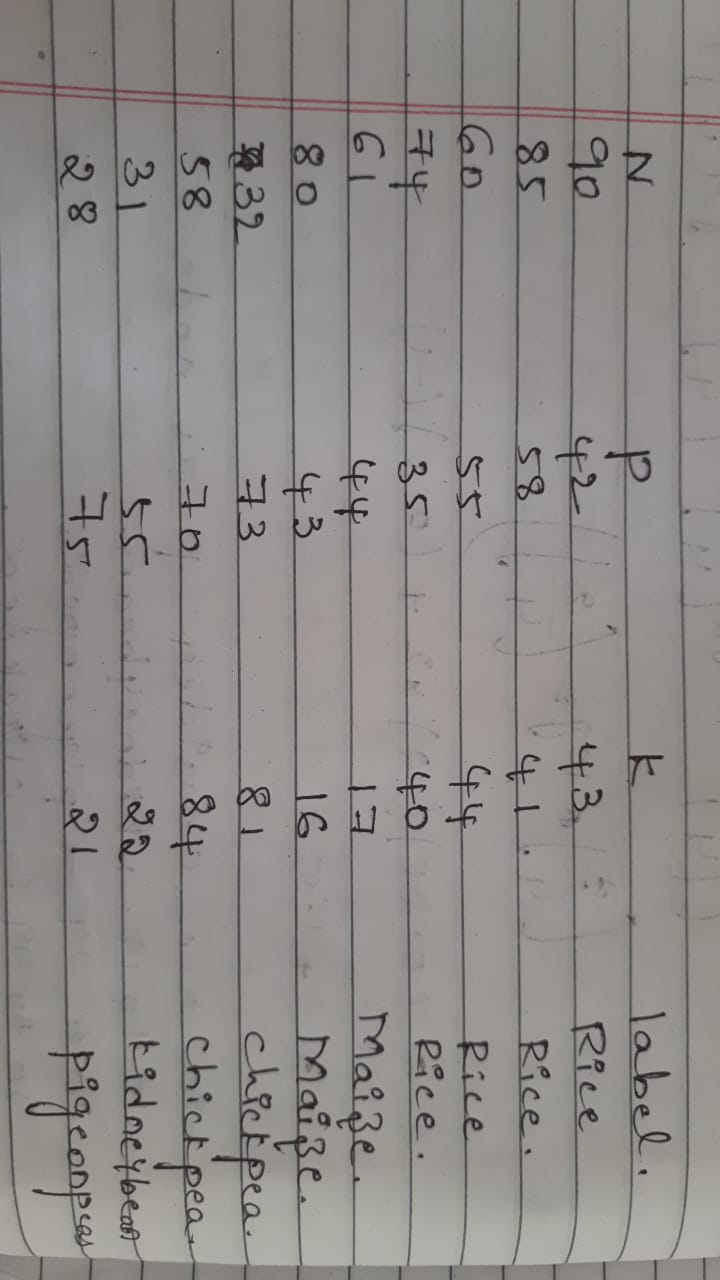 N P K label.
90 42 43 Rice
85 58 41. Rice.
60 55 44 Rice
74 35 40 Rice.
61 44 17 Maize.
80 43 16 Maize.
32 73 81 chickpea.
58 70 84 chickpea
31 55 22 kidneybean
28 75 21 pigeonpeas